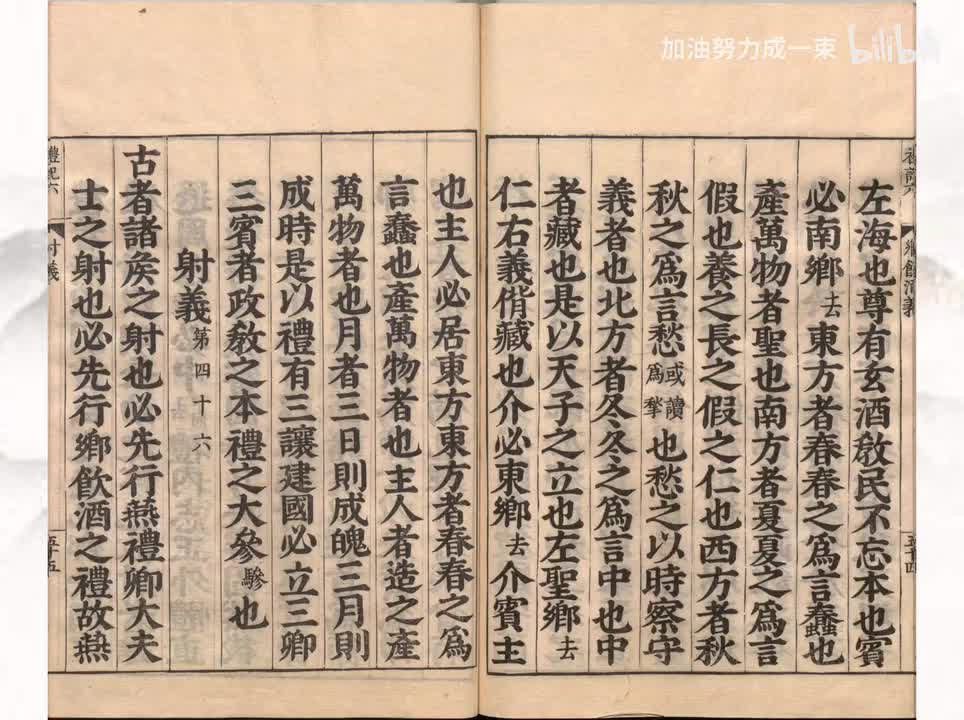 加油努力成一束 bilibili
禮記六 鄉飲酒義 五十四
左海也尊有玄酒敎民不忘本也賓
必南鄉去東方者春春之爲言蠢也
產萬物者聖也南方者夏夏之爲言
假也養之長之假之仁也西方者秋
秋之爲言愁或讀爲揫也愁之以時察守
義者也北方者冬冬之爲言中也中
者藏也是以天子之立也左聖鄉去
仁右義偝藏也介必東鄉去介賓主
也主人必居東方東方者春春之爲
言蠢也產萬物者也主人者造之產
萬物者也月者三日則成魄三月則
成時是以禮有三讓建國必立三卿
三賓者政敎之本禮之大參驂也
射義第四十六
古者諸矦之射也必先行燕禮卿大夫
士之射也必先行鄉飮酒之禮故燕
禮記六 射義 五十五